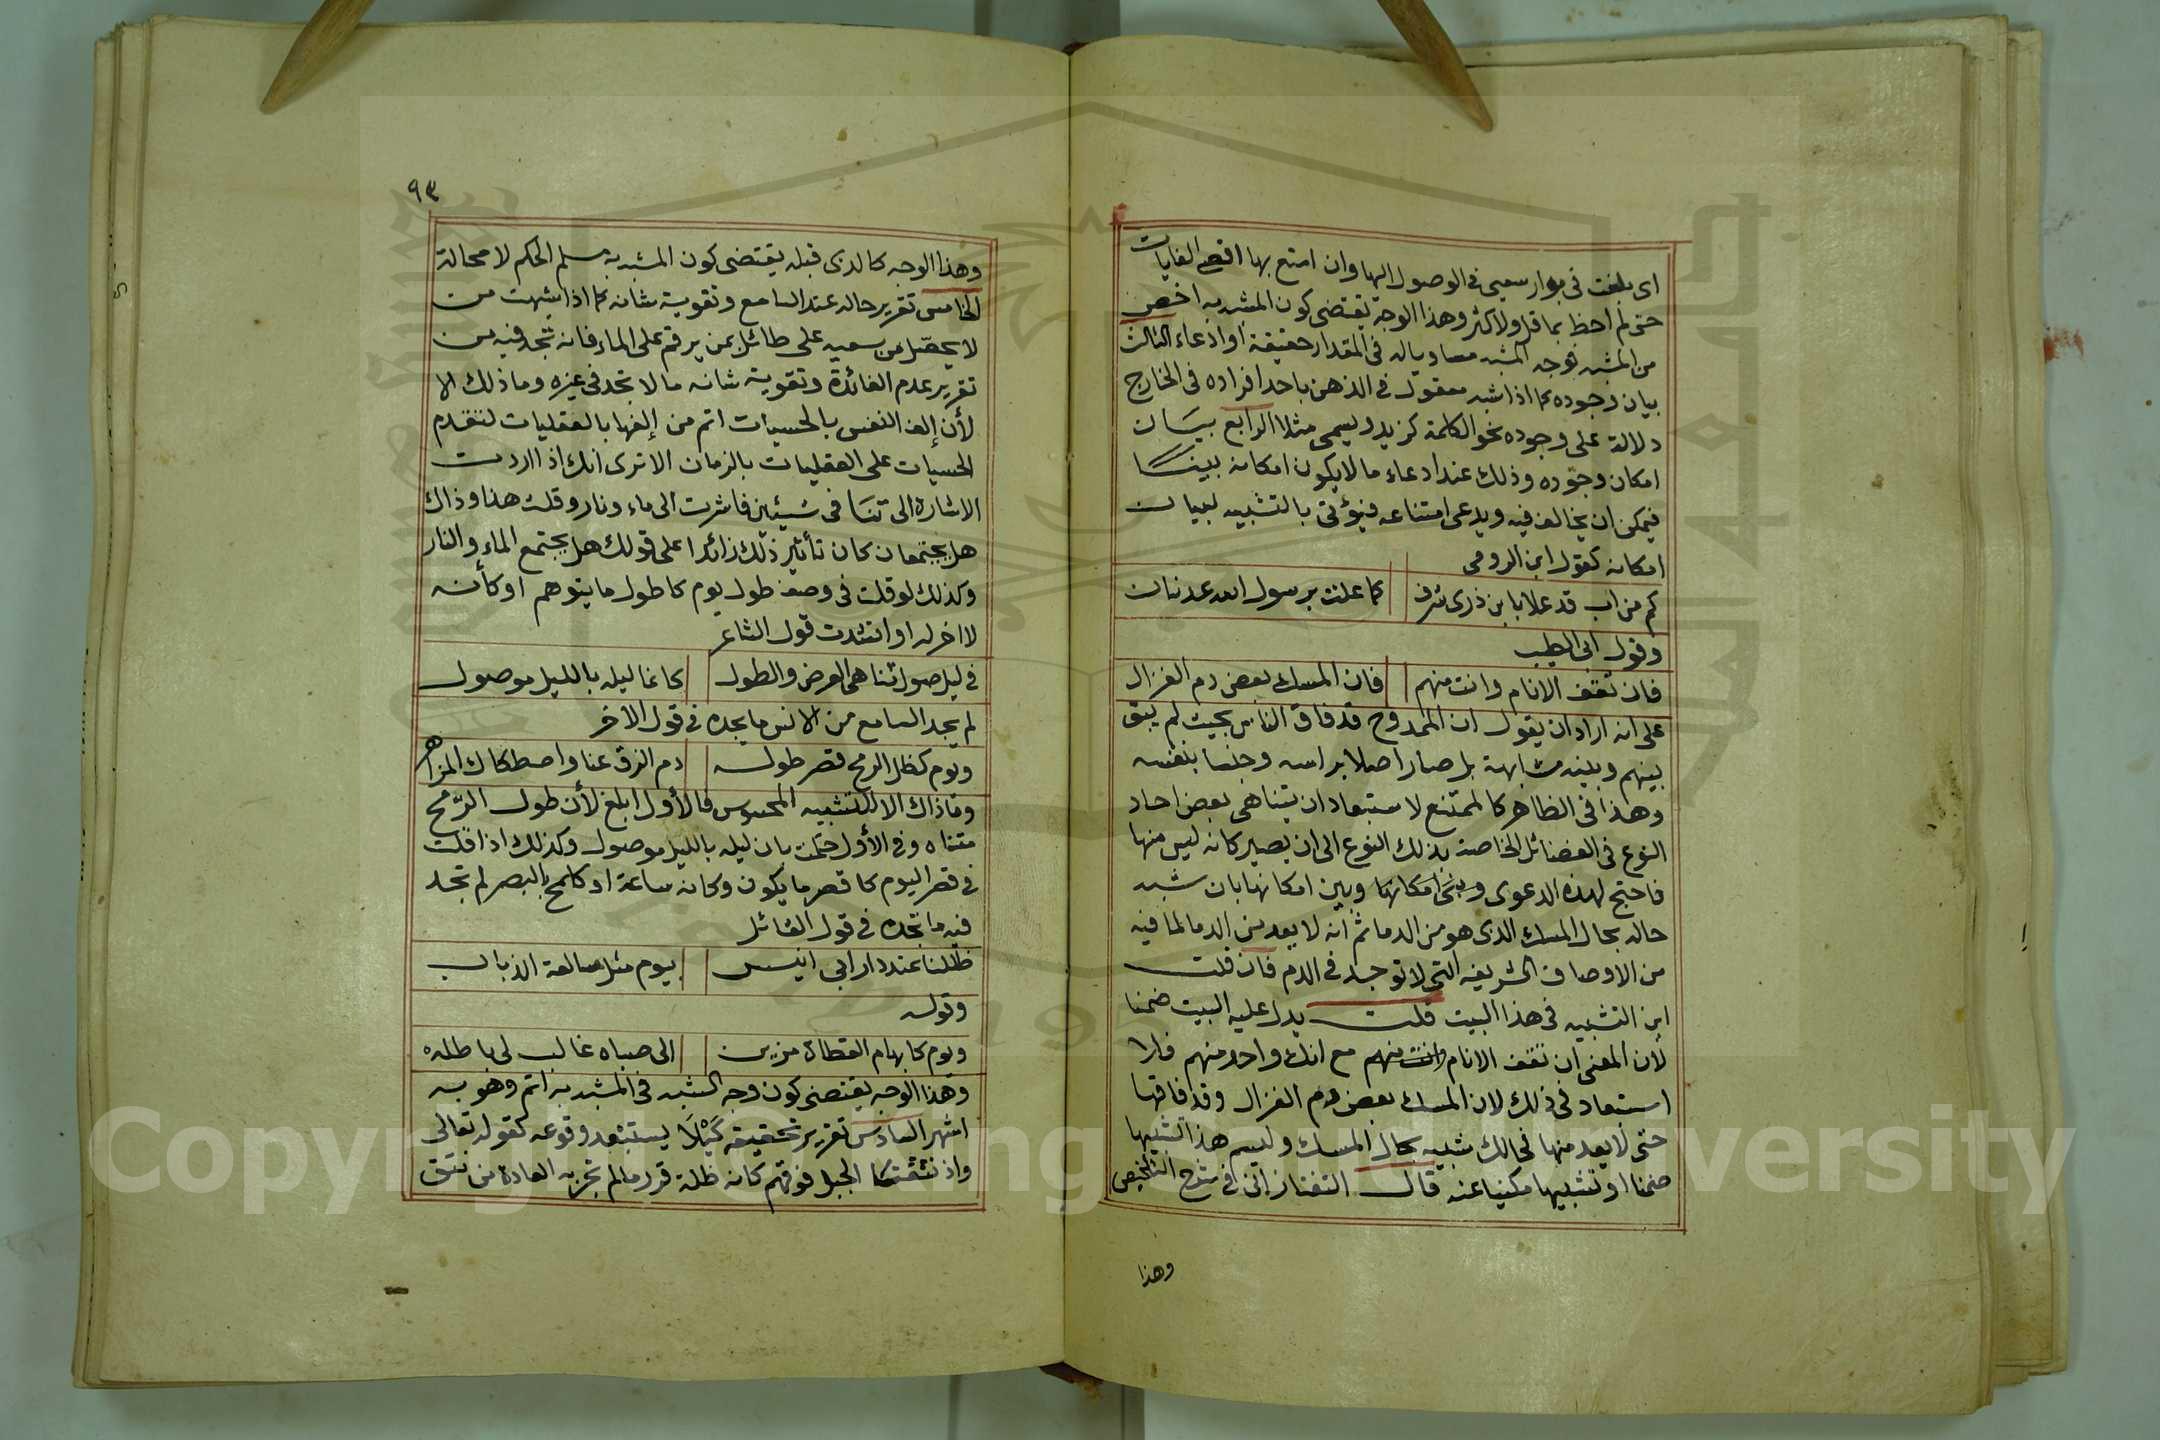 اى بلغت فى بوار سعيى فى الوصول اليها وان امتع بها اقصى الغايات
حتى لم احظ بما قل ولا كثر وهذا الوجه يقتضى كون المشبه به اخص
من المشبه بوجه الشبه مساويا له فى المقدار حقيقة او ادعاء الثالث
بيان وجوده كما اذا شبه معقول فى الذهن باحد افراده فى الخارج
دلالة على وجوده نحو الكلمة كزيد ويسمى مثلا الرابع بيان
امكان وجوده وذلك عند ادعاء ما لا يكون امكانه بينا
فيمكن ان يخالف فيه ويدعى امتناعه فيؤتى بالتشبيه لبيان
امكانه كقول ابن الرومى
كم من اب قد علا بابن ذرى شرف كما علت برسول الله عدنان
وقول ابى الطيب
فان تفق الانام وانت منهم فان المسك بعض دم الغزال
على انه اراد ان يقول ان الممدوح قد فاق الناس بحيث لم يبق
بينهم وبينه مشابهة بل صار اصلا براسه وجنسا بنفسه
وهذا فى الظاهر كالممتنع لاستبعاد ان يتناهى بعض احاد
النوع فى الفضائل الخاصة بذلك النوع الى ان يصير كانه ليس منها
فاحتج لهذه الدعوى وبين امكانها بان شبه
حاله بحال المسك الذى هو من الدما ثم انه لا يعد من الدما لما فيه
من الاوصاف الشريفة التى لا توجد فى الدم فان قلت
اين التشبيه فى هذا البيت قلت يدل عليه البيت ضمنا
لأن المعنى ان تفق الانام وانت منهم مع انك واحد منهم فلا
استبعاد فى ذلك لان المسك بعض دم الغزال وقد فاقها
حتى لا يعد منها فحالك شبيه بحال المسك وليسم هذا تشبيها
ضمنا او تشبيها مكنيا عنه قال التفتازانى فى شرح التلخيص
وهذا
٩٣
وهذا الوجه كالذى قبله يقتضى كون المشبه به مسلم الحكم لا محالة
الخامس تقرير حاله عند السامع وتقوية شانه كما اذا شبهت من
لا يحصل من سعيه على طائل بمن يرقم على الماء فانه تجد فيه من
تقرير عدم الفائدة وتقوية شانه ما لا تجد فى غيره وما ذلك الا
لأن إلف النفس بالحسيات اتم من إلفها بالعقليات لتقدم
الحسيات على العقليات بالزمان الا ترى انك اذا اردت
الاشارة الى تنافى شيئين فاشرت الى ماء ونار وقلت هذا وذاك
هل يجتمعان كان تأثير ذلك زائدا على قولك هل يجتمع الماء والنار
وكذلك لو قلت فى وصف طول يوم كاطول ما يتوهم او كأنه
لا اخر له او انشدت قول الشاعر
فى ليل صول تناهى العرض والطول كانما ليله بالليل موصول
لم يجد السامع من الانس ما يجده فى قول الاخر
ويوم كظل الرمح قصر طوله دم الزق عنا واصطكاك المزاهر
وما ذاك الا للتشبيه المحسوس فالأول ابلغ لأن طول الرّمح
متناه وفى الأول حكمت بان ليله بالليل موصول وكذلك اذا قلت
فى قصر اليوم كاقصر ما يكون وكانه ساعة او كلمح بالبصر لم تجد
فيه ما تجده فى قول القائل
ظللنا عند دار ابى انيس بيوم مثل سالفة الذباب
وقوله
ويوم كابهام القطاة مزين الى صباه غالب لى باطله
وهذا الوجه يقتضى كون وجه الشبه فى المشبه به اتم وهو به
اشهر السادس تقرير تحقيقه كيلا يستبعد وقوعه كقوله تعالى
واذ نتقنا الجبل فوقهم كانه ظلة قرر ما لم تجر به العادة من نتق
Copyright © King Saud University